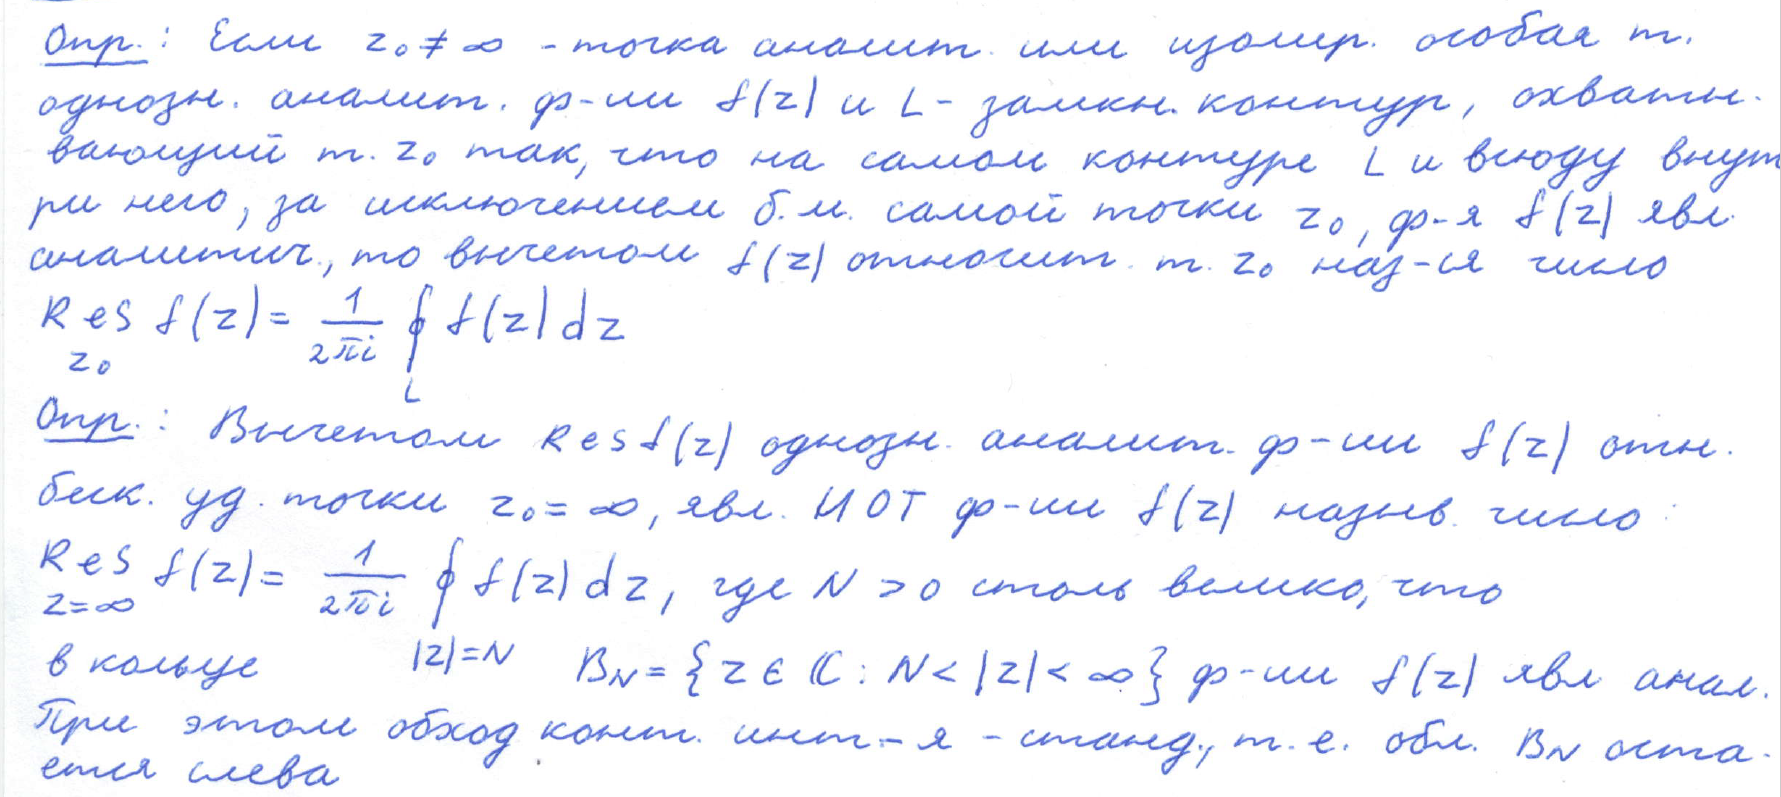 Опр.: Если z₀ ≠ ∞ - точка аналит. или изолир. особая т.
однозн. аналит. ф-ии f(z) и L - замкн. контур, охваты-
вающий т. z₀ так, что на самом контуре L и всюду внут
ри него, за исключением б.м. самой точки z₀, ф-я f(z) явл.
аналитич., то вычетом f(z) относит. т. z₀ наз-ся число
Res f(z) = 1/2πi ∮ f(z) dz
z₀ L
Опр.: Вычетом Res f(z) однозн. аналит. ф-ии f(z) отн.
беск. уд. точки z₀ = ∞, явл. ИОТ ф-ии f(z) назыв. число:
Res f(z) = 1/2πi ∮ f(z) dz, где N > 0 столь велико, что
z=∞ |z|=N
в кольце B_N = {z ∈ ℂ : N < |z| < ∞} ф-ии f(z) явл анал.
При этом обход конт. инт-я - станд., т.е. обл. B_N оста-
ется слева